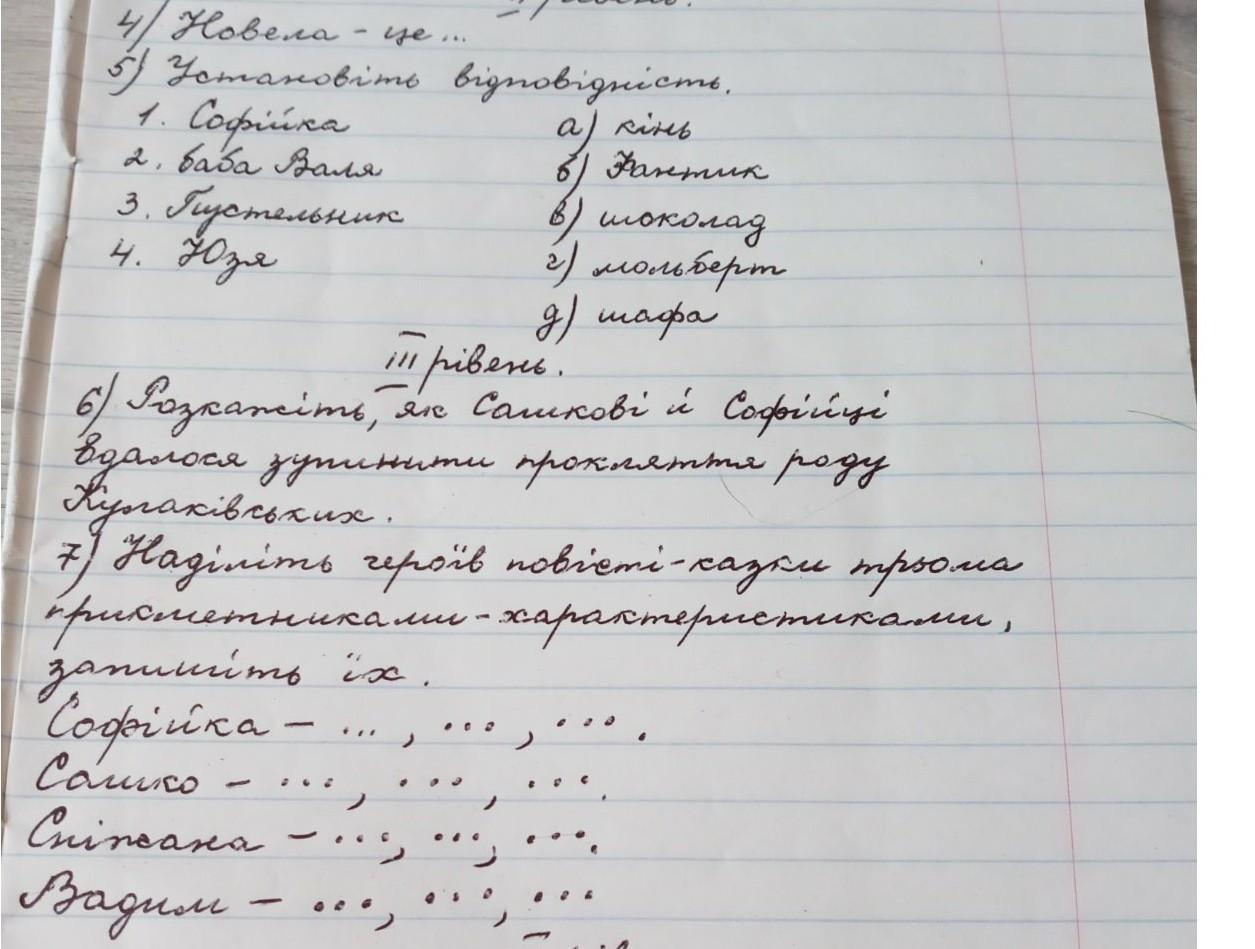 рівень.
4) Новела - це ...
5) Установіть відповідність.
1. Софійка а) кінь
2. баба Валя б) Фантик
3. Пустельник в) шоколад
4. Юзя г) мольберт
д) шафа
III рівень.
6) Розкажіть, як Сашкові й Софійці
вдалося зупинити прокляття роду
Кулаківських.
7) Наділіть героїв повісті-казки трьома
прикметниками-характеристиками,
запишіть їх.
Софійка - ..., ..., ... .
Сашко - ..., ..., ... .
Сніжана - ..., ..., ... .
Вадим - ..., ..., ...